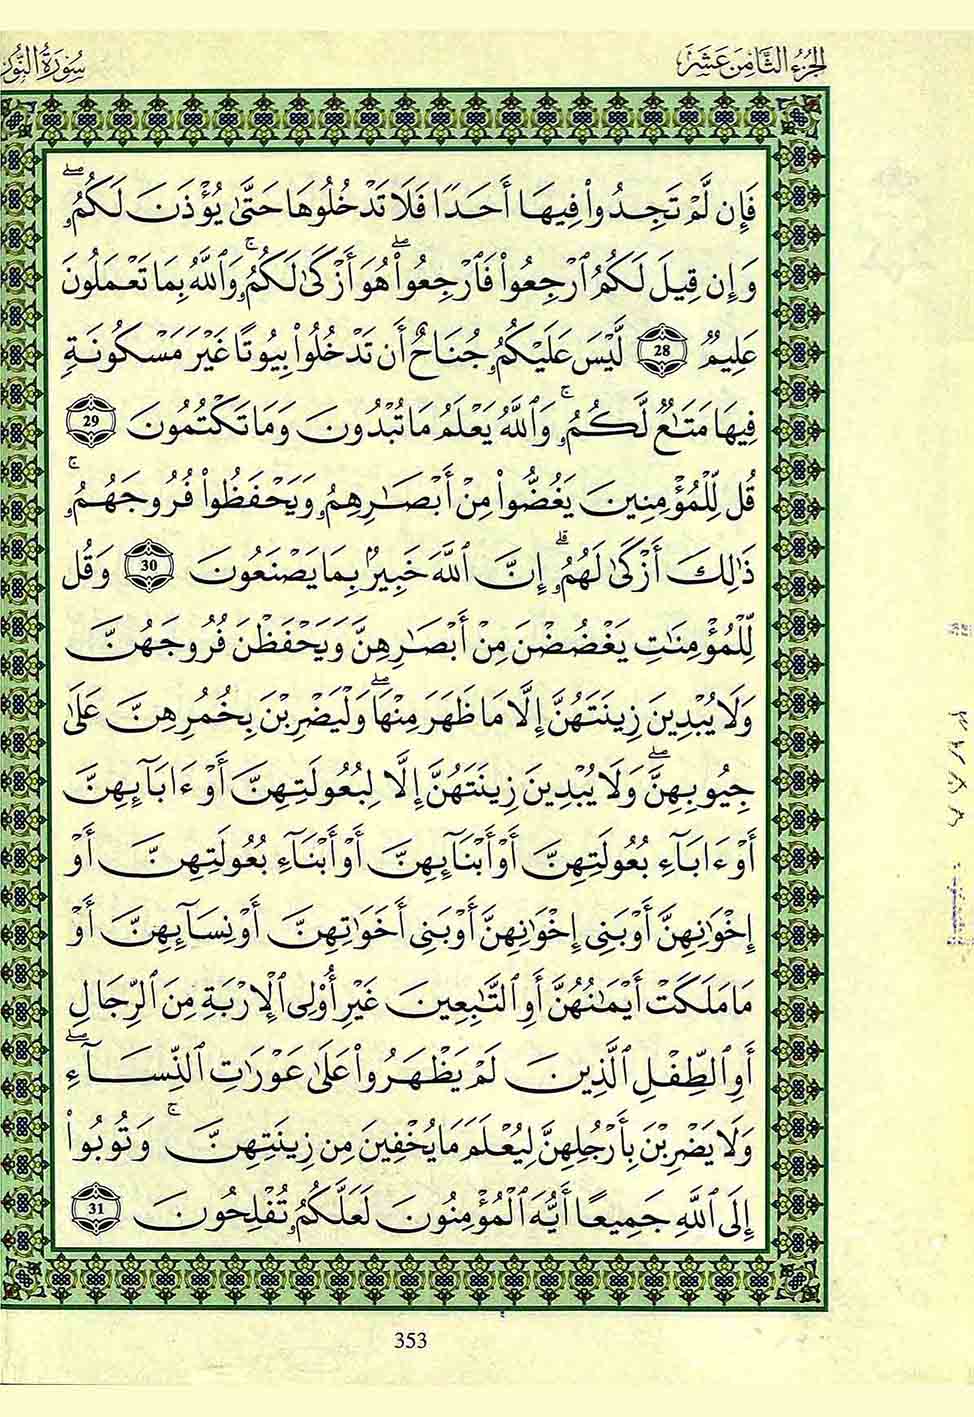 الجزء الثامن عشر
سورة النور
فَإِن لَّمْ تَجِدُوا۟ فِيهَا أَحَدًا فَلَا تَدْخُلُوهَا حَتَّىٰ يُؤْذَنَ لَكُمُۥۖ
وَإِن قِيلَ لَكُمُ ٱرْجِعُوا۟ فَٱرْجِعُوا۟ۖ هُوَ أَزْكَىٰ لَكُمُۥۚ وَٱللَّهُ بِمَا تَعْمَلُونَ
عَلِيمٌ 28 لَّيْسَ عَلَيْكُمُۥ جُنَاحٌ أَن تَدْخُلُوا۟ بِيُوتًا غَيْرَ مَسْكُونَةٍ
فِيهَا مَتَٰعٌ لَّكُمُۥۚ وَٱللَّهُ يَعْلَمُ مَا تُبْدُونَ وَمَا تَكْتُمُونَ 29
قُل لِّلْمُؤْمِنِينَ يَغُضُّوا۟ مِنْ أَبْصَٰرِهِمُۥ وَيَحْفَظُوا۟ فُرُوجَهُمُۥۚ
ذَٰلِكَ أَزْكَىٰ لَهُمُۥۗ إِنَّ ٱللَّهَ خَبِيرٌۢ بِمَا يَصْنَعُونَ 30 وَقُل
لِّلْمُؤْمِنَٰتِ يَغْضُضْنَ مِنْ أَبْصَٰرِهِنَّ وَيَحْفَظْنَ فُرُوجَهُنَّ
وَلَا يُبْدِينَ زِينَتَهُنَّ إِلَّا مَا ظَهَرَ مِنْهَاۖ وَلْيَضْرِبْنَ بِخُمُرِهِنَّ عَلَىٰ
جِيُوبِهِنَّۖ وَلَا يُبْدِينَ زِينَتَهُنَّ إِلَّا لِبُعُولَتِهِنَّ أَوْ ءَابَآئِهِنَّ
أَوْ ءَابَآءِ بُعُولَتِهِنَّ أَوْ أَبْنَآئِهِنَّ أَوْ أَبْنَآءِ بُعُولَتِهِنَّ أَوْ
إِخْوَٰنِهِنَّ أَوْ بَنِى إِخْوَٰنِهِنَّ أَوْ بَنِى أَخَوَٰتِهِنَّ أَوْ نِسَآئِهِنَّ أَوْ
مَا مَلَكَتْ أَيْمَٰنُهُنَّ أَوِ ٱلتَّٰبِعِينَ غَيْرِ أُو۟لِى ٱلْإِرْبَةِ مِنَ ٱلرِّجَالِ
أَوِ ٱلطِّفْلِ ٱلَّذِينَ لَمْ يَظْهَرُوا۟ عَلَىٰ عَوْرَٰتِ ٱلنِّسَآءِۖ
وَلَا يَضْرِبْنَ بِأَرْجُلِهِنَّ لِيُعْلَمَ مَا يُخْفِينَ مِن زِينَتِهِنَّۚ وَتُوبُوا۟
إِلَى ٱللَّهِ جَمِيعًا أَيُّهَ ٱلْمُؤْمِنُونَ لَعَلَّكُمُۥ تُفْلِحُونَ 31
353